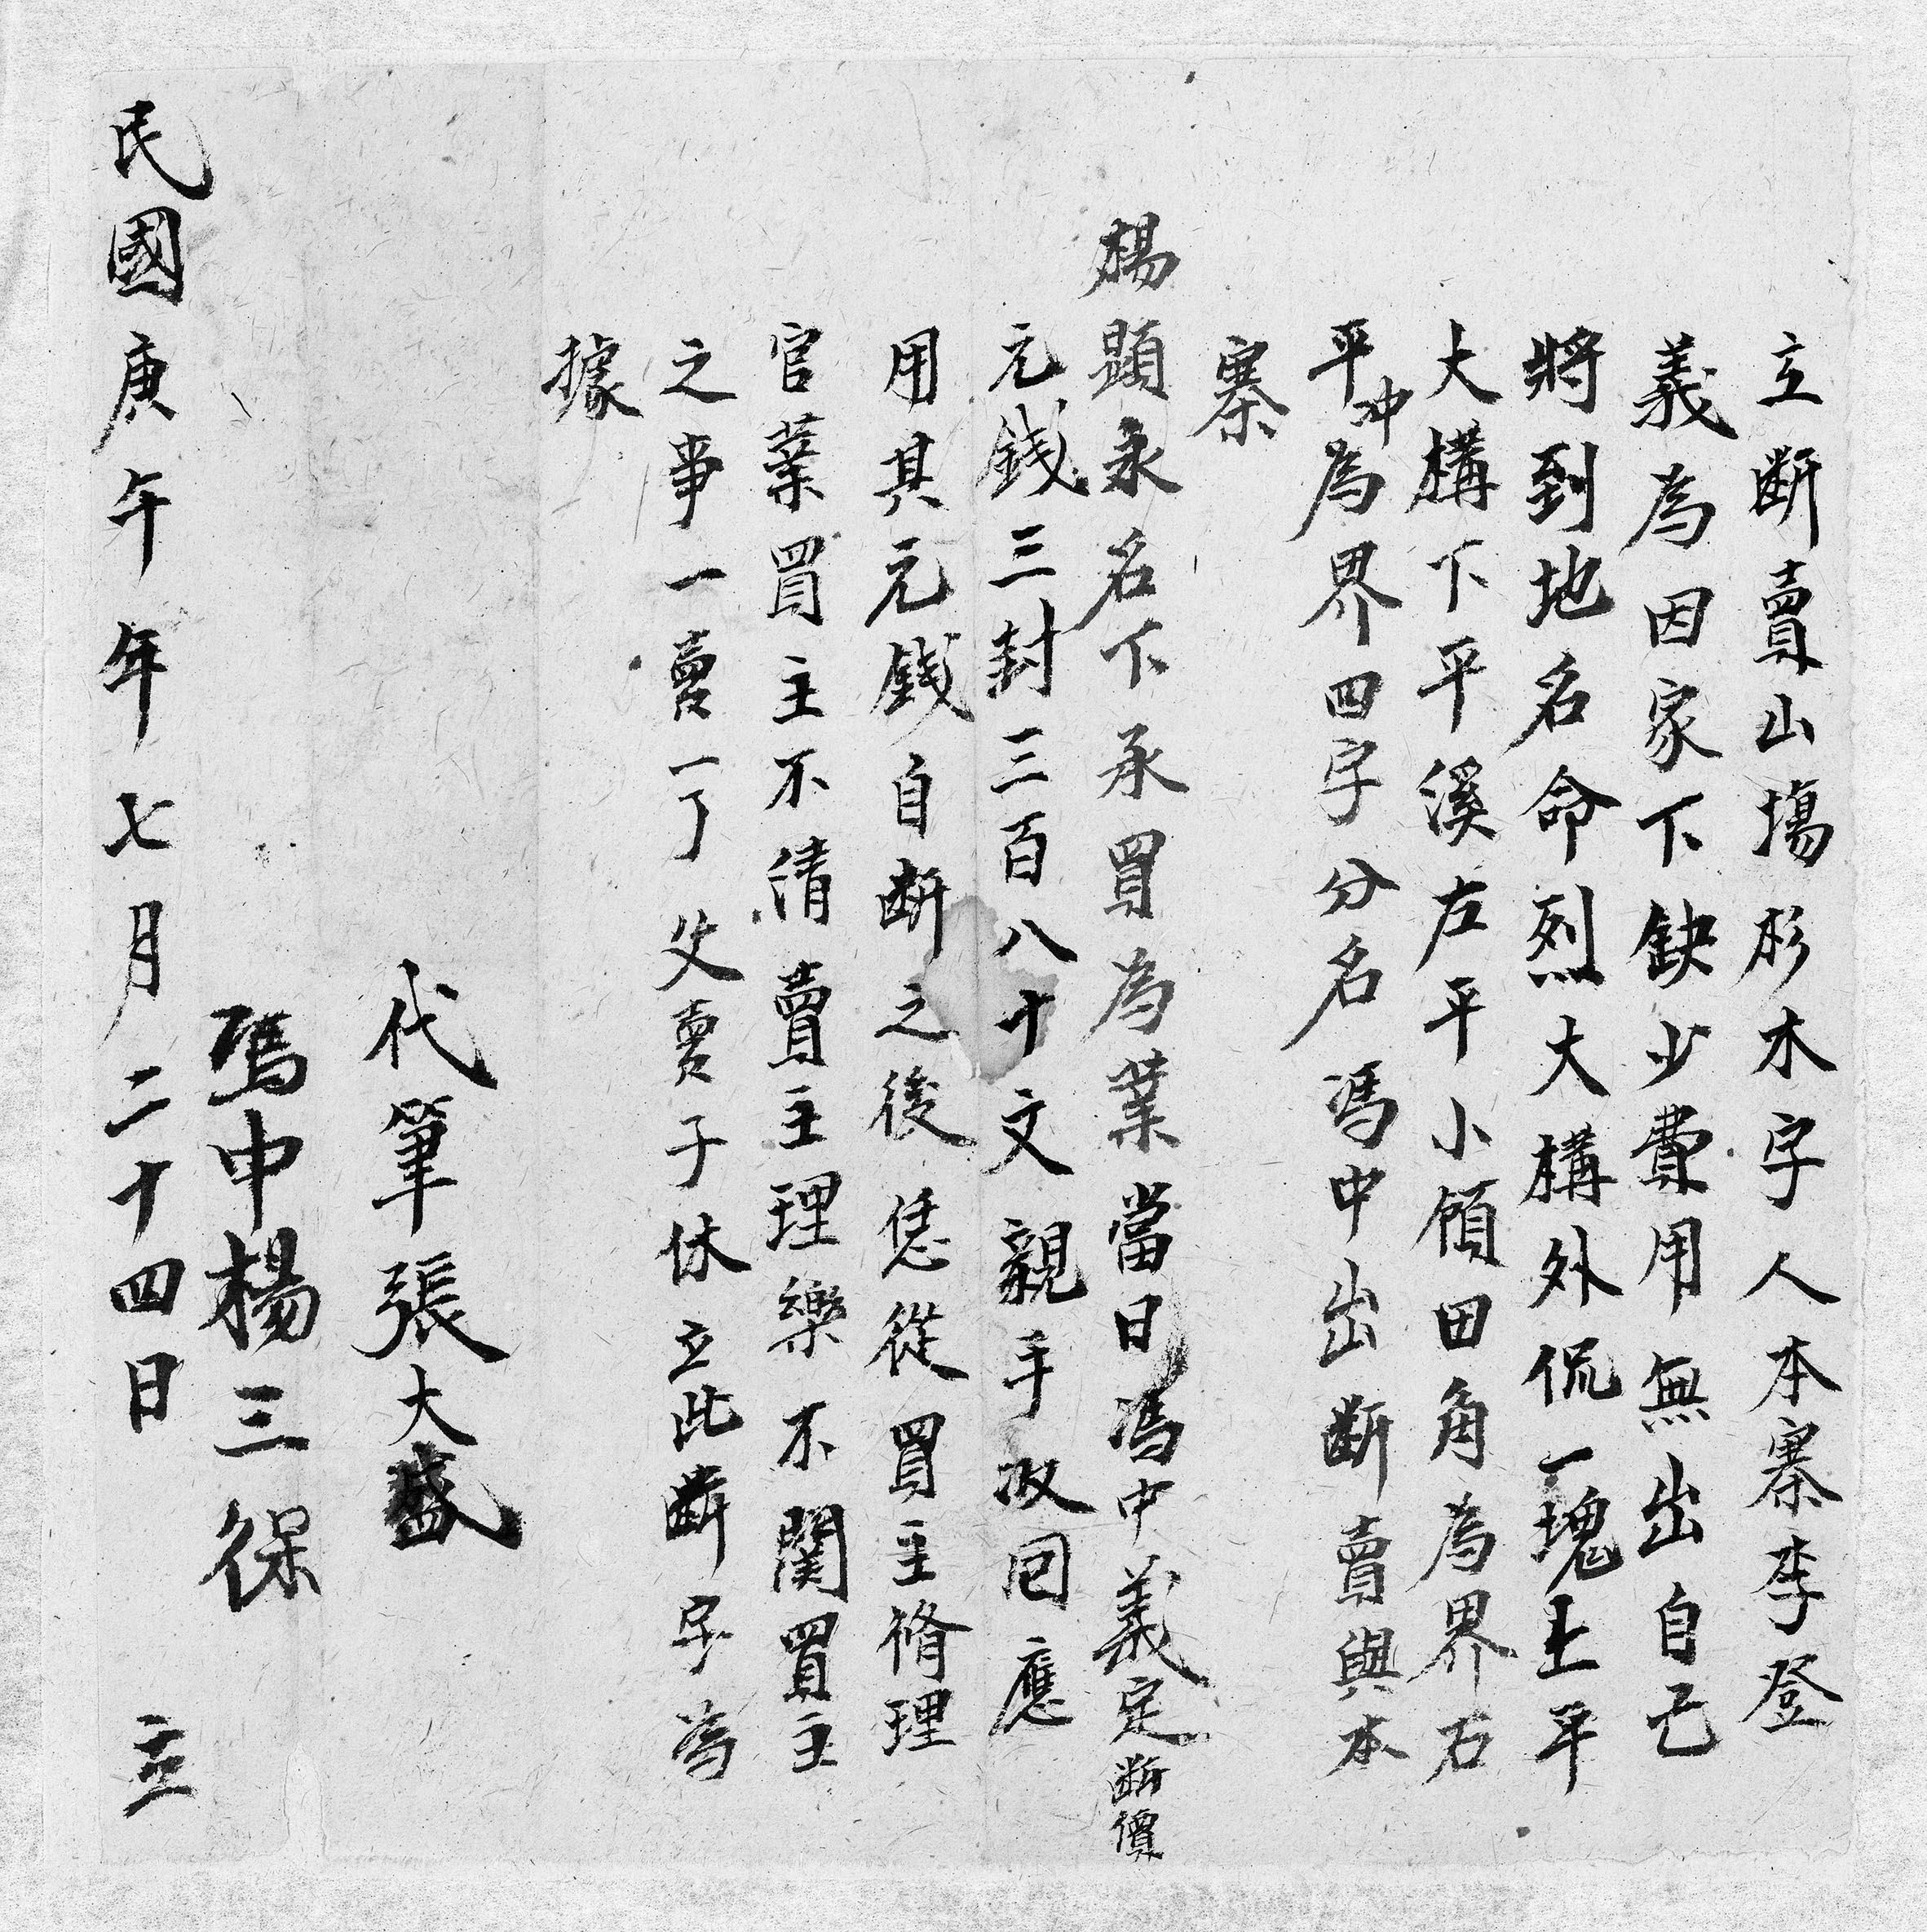 立断賣山塲杉木字人本寨李登
義為因家下缺少費用無出自己
將到地名命烈大構外侃一塊上平
大構下平溪左平小領田角為界右
平冲為界四字分名馮中出断賣與本
寨
楊顕永名下承買為業當日馮中義定断價
元錢三封三百八十文親手收回應
用其元錢自断之後恁從買主脩理
官業買主不清賣主理樂不関買主
之事一賣一了父賣子休立此断字為
據
代筆張大盛
馮中楊三保
民國庚午年七月二十四日立